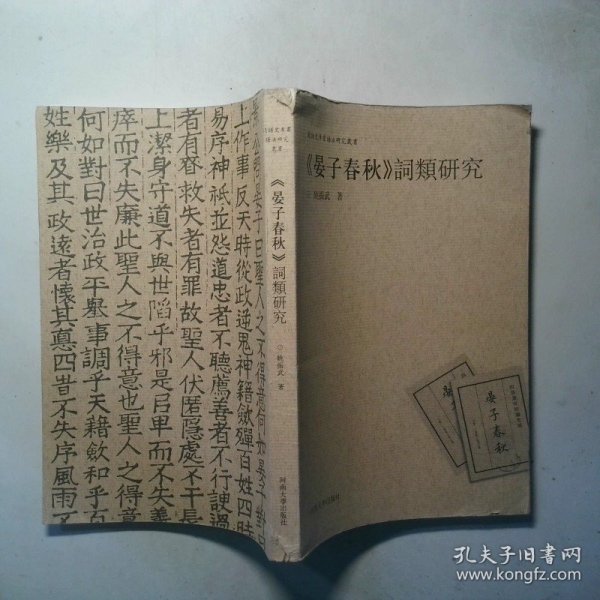 《晏子春秋》詞類研究
姚振武 著
《晏子春秋》詞類研究
姚振武 著
河南大學出版社
晏子春秋
上作事反天時從政逆鬼神籍斂殫百姓四時
易序神祇並怨道忠者不聽薦善者不行諛過
者有賚救失者有罪故聖人伏匿隱處不干長
上潔身守道不與世陷乎邪是㠯卑而不失義
瘁而不失廉此聖人之不得意也聖人之不得
何如對曰世治政平舉事調乎天籍斂和乎百
姓樂及其政遠者懷其悳四旹不失序風雨不
孔夫子旧书网
www.kongfz.com